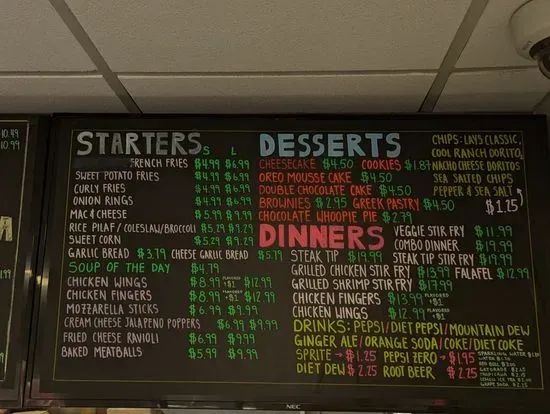 10.49
10.99
STARTERS
S L
FRENCH FRIES $4.99 $6.99
SWEET POTATO FRIES $4.99 $6.99
CURLY FRIES $4.99 $6.99
ONION RINGS $4.99 $6.99
MAC & CHEESE $5.99 $9.99
RICE PILAF / COLESLAW/BROCCOLI $5.29 $9.29
SWEET CORN $5.29 $9.29
GARLIC BREAD $3.79 CHEESE GARLIC BREAD $5.79
SOUP OF THE DAY $4.79
CHICKEN WINGS $8.99 FLAVORED +$1 $12.99
CHICKEN FINGERS $8.99 FLAVORED +$2 $12.99
MOZZARELLA STICKS $6.99 $9.99
CREAM CHEESE JALAPENO POPPERS $6.99 $9.99
FRIED CHEESE RAVIOLI $6.99 $9.99
BAKED MEATBALLS $5.99 $9.99
DESSERTS
CHEESECAKE $4.50 COOKIES $1.87
OREO MOUSSE CAKE $4.50
DOUBLE CHOCOLATE CAKE $4.50
BROWNIES $2.95 GREEK PASTRY $4.50
CHOCOLATE WHOOPIE PIE $2.79
CHIPS: LAYS CLASSIC,
COOL RANCH DORITO,
NACHO CHEESE DORITOS
SEA SALTED CHIPS
PEPPER & SEA SALT
$1.25
DINNERS
VEGGIE STIR FRY $11.99
COMBO DINNER $19.99
STEAK TIP $19.99 STEAK TIP STIR FRY $19.99
GRILLED CHICKEN STIR FRY $13.99 FALAFEL $12.99
GRILLED SHRIMP STIR FRY $17.99
CHICKEN FINGERS $13.99 FLAVORED +$2
CHICKEN WINGS $12.99 FLAVORED +$1
DRINKS: PEPSI/DIET PEPSI/MOUNTAIN DEW
GINGER ALE/ORANGE SODA/COKE/DIET COKE
SPRITE → $1.25 PEPSI ZERO → $1.95
DIET DEW $2.25 ROOT BEER $2.25
SPARKLING WATER
GATORADE
TROPICANA $2.25
LEMON ICE TEA
GRAPE SODA
NEC